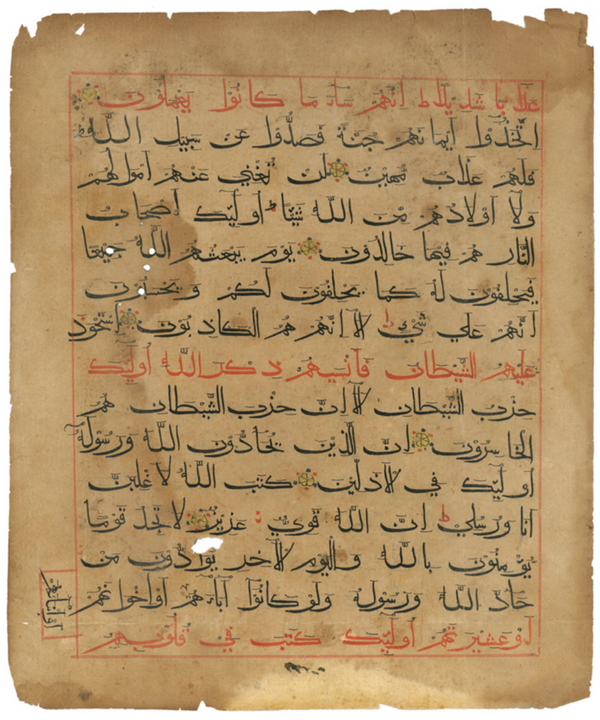 عذابا شديدا انهم ساء ما كانوا يعملون
اتخذوا ايمانهم جنة فصدوا عن سبيل الله
فلهم عذاب مهين لن تغني عنهم اموالهم
ولا اولادهم من الله شيئا اوليك اصحاب
النار هم فيها خالدون يوم يبعثهم الله جميعا
فيحلفون له كما يحلفون لكم ويحسبون
انهم علي شيء الا انهم هم الكاذبون استحوذ
عليهم الشيطان فانسيهم ذكر الله اوليك
حزب الشيطان الا ان حزب الشيطان هم
الخاسرون ان الذين يحادون الله ورسوله
اوليك في الاذلين كتب الله لاغلبن
انا ورسلي ان الله قوي عزيز لا تجد قوما
يومنون بالله واليوم الاخر يوادون من
حاد الله ورسوله ولو كانوا اباءهم او اخوانهم
او ابناءهم
او عشيرتهم اوليك كتب في قلوبهم